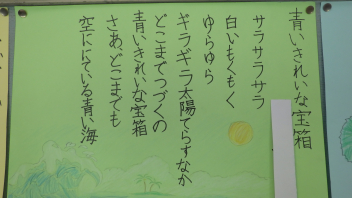 青いきれいな宝箱
サラサラサラ
白いもくもく
ゆらゆら
ギラギラ太陽てらすなか
どこまでつづくの
青いきれいな宝箱
さあ、どこまでも
空ににている青い海